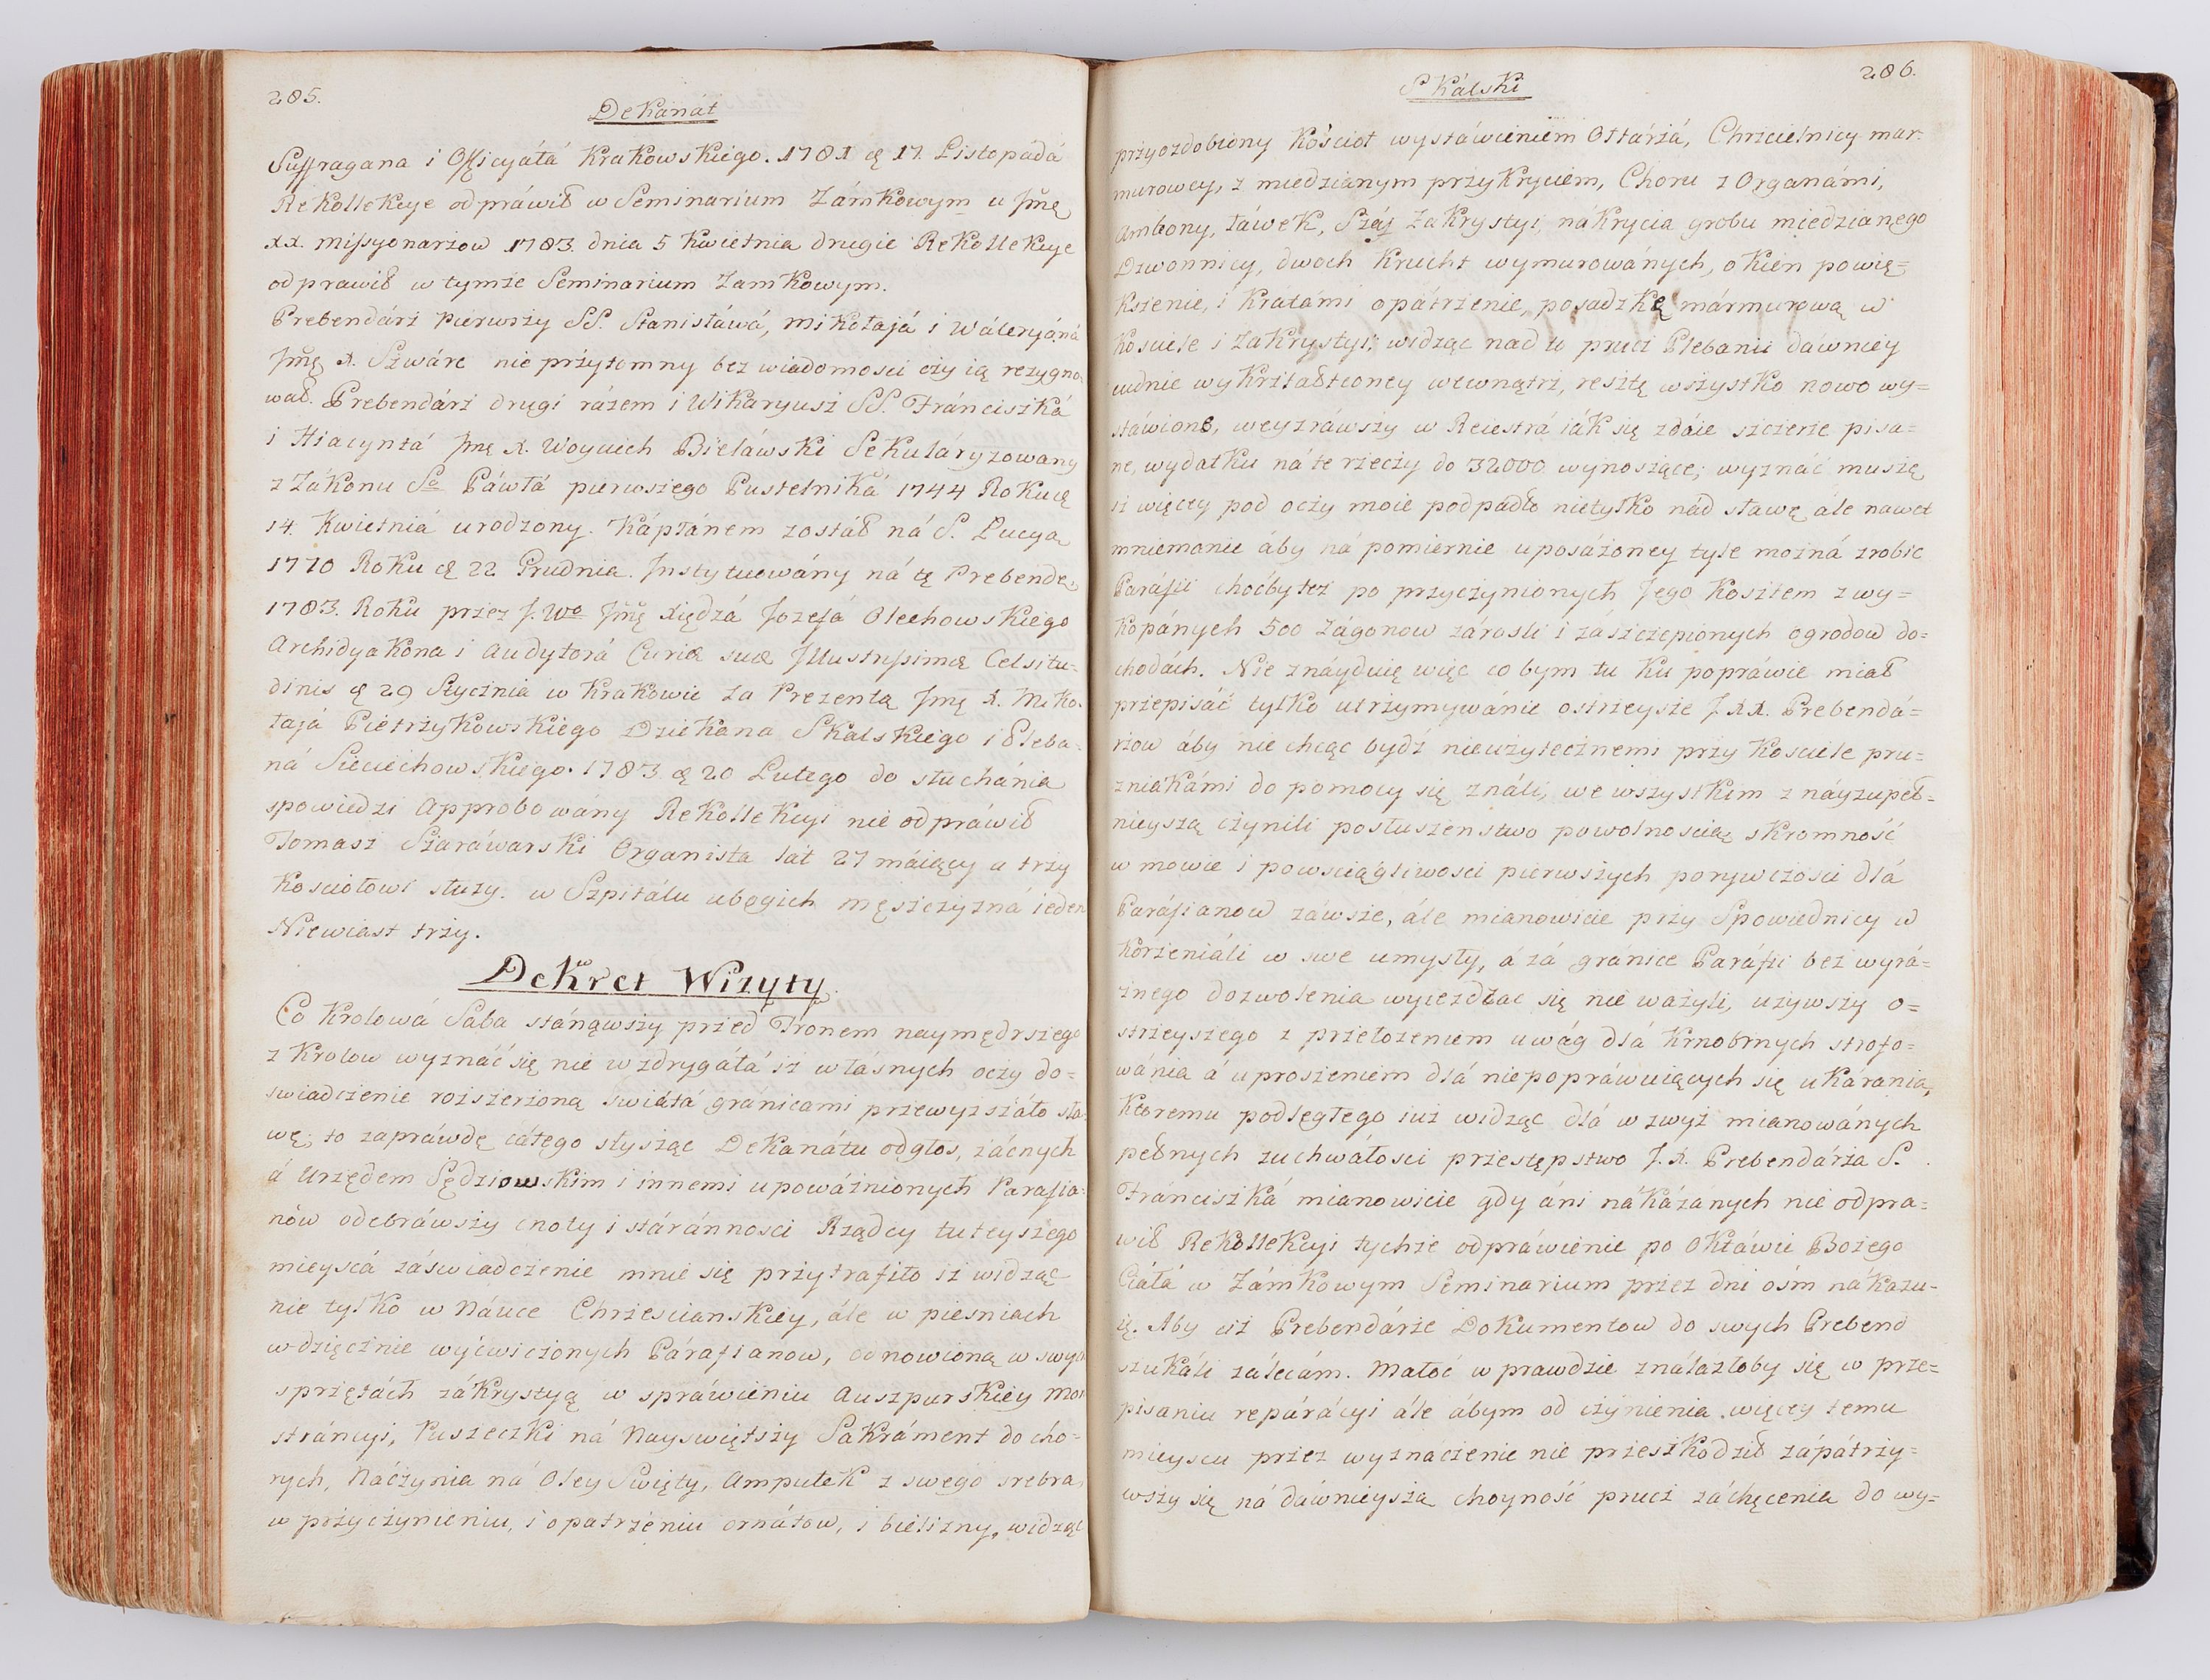 285.
Dekanat
Suffragana i Officyáłá Krakowskiego. 1781 ę 17. Listopadá
Rekollekcye odpráwił w Seminarium Zámkowym u Jmę
XX. Missyonarzow 1783 dnia 5 Kwietnia drugie Rekollekcye
odprawił w tymże Seminarium Zamkowym.
Prebendárz Pierwszy SS. Stanisłáwá, Mikołajá i Wáleryáná
Jmę X. Szwárc nie przytomny bez wiadomosci czy ią rezygno
wał. Prebendárz drugi rázem i Wikaryusz SS. Fránciszká
i Hiacyntá Jmę X. Woyciech Bieláwski Sekuláryzowany
z Zákonu So Páwłá pierwszego Pustelniká 1744 Roku ę
14. Kwietniá urodzony. Kápłánem zostáł ná S. Lucyą
1770 Roku ę 22 Grudnia. Instytuowány ná tę Prebendę
1783. Roku przez J. Wo Jmę Xiędzá Jozefá Olechowskiego
Archidyakona i Audytorá Curiæ suæ Illustrissimæ Celsitu-
dinis ę 29 Stycznia w Krakowie za Prezentą Jmę X. Miko-
łajá Pietrzykowskiego Dziekana Skalskiego i Pleba-
ná Sieciechowskiego. 1783 ę 20 Lutego do słuchánia
spowiedzi Approbowány Rekollekcyi nie odpráwił
Tomasz Szaráwarski Organista lat 27 máiący u trzy
Kosciołowi służy. w Szpitálu ubogich męszczyzná ieden
Niewiast trzy.
Dekret Wizyty.
Co Krolowá Saba stánąwszy przed Tronem naymędrszego
z Krolow wyznáć się nie wzdrygáłá iż włásnych oczy do=
swiadczenie rozszerzoną swiátá gránicami przewyzszáło sła-
wę; to zapráwdę cáłego słysząc Dekanátu odgłos, zácnych
á Urzędem Sędziowskim i innemi upoważnionych Parafia-
nów odebráwszy cnoty i stáránnosci Rządcy tuteyszego
mieyscá záswiadczenie mnie się przytrafiło iż widząc
nie tylko w Náuce Chrzescianskiey, ále w piesniach
wdzięcznie wyćwiczonych Páráfianow, odnowioną w swych
sprzętách zákrystyą w spráwieniu Auszpurskiey Mon
stráncyi, Puszeczki ná Nayswiętszy Sakráment do cho=
rych, Náczynia ná Oley Swięty, Ampułek z swego srebra
w przyczynieniu, i opatrzeniu ornátow, i bielizny, widząc
Skálski
286.
przyozdobiony Kościoł wystáwieniem Ołtárzá, Chrzcielnicy mar-
murowey, z miedzianym przykryciem, Choru z Organámi,
Ambony, łáwek, Száf Zakrystyi, nákrycia grobu miedzianego
Dzwonnicy, dwoch Krucht wymurowánych, okien powię=
kszenie, i Kratámi opátrzenie, posadzkę mármurową w
Kosciele i Zakrystyi; widząc nad to prucz Plebanii dawniey
cudnie wykształtconey wewnątrz, resztę wszystko nowo wy=
stáwione, weyzráwszy w Reiestrá iák się zdáie szczerze pisa=
ne, wydatku ná te rzeczy do 32000 wynoszące; wyznáć muszę
iż więcey pod oczy moie podpadło nietylko nád sławę ále nawet
mniemanie áby ná pomiernie uposázoney tyle mozná zrobic
Paráfii choćbytez po przyczynionych Jego Kosztem z wy=
kopánych 500 Zágonow zárosli i zászczepionych ogrodow do=
chodách. Nie znáyduię więc co bym tu ku popráwie miał
przepisáć tylko utrzymywánie ostrzeysze J. XX. Prebendá=
rzow áby nie chcąc bydź nieużytecznemi przy Kosciele pru=
zniakámi do pomocy się ználi, we wszystkim z náyzupeł=
nieyszą czynili posłuszenstwo powolnoscią skromność
w mowie i powsciągliwosci pierwszych porywczosci dlá
Paráfianow záwsze, ále mianowicie przy Spowiednicy w
korzeniáli w swe umysły, á zá gránice Paráfii bez wyrá=
znego dozwolenia wyiezdzac się nie ważyli, uzywszy o=
strzeyszego z przełozeniem uwág dlá Krnobrnych strofo=
wánia á uproszeniem dlá niepopráwuiących się ukárania,
Ktoremu podległego iuż widząc dlá wzwyż mianowánych
pełnych zuchwáłosci przestępstwo J. X. Prebendárza S.
Fránciszká mianowicie gdy áni nákázanych nie odpra=
wił Rekollekcyi tychże odpráwienie po Oktáwie Bożego
Ciáłá w Zámkowym Seminarium przez dni ośm nákazu-
ię. Aby ciż Prebendárze Dokumentow do swych Prebend
szukáli zálecám. Małoć wprawdzieználázłoby się w prze=
pisaniu repárácyi ále ábym od czynienia więcey temu
mieyscu przez wyznaczenie nie przeszkodził zápátrzy=
wszy się ná dáwnieyszą choyność prucz záchęcenia do wy=